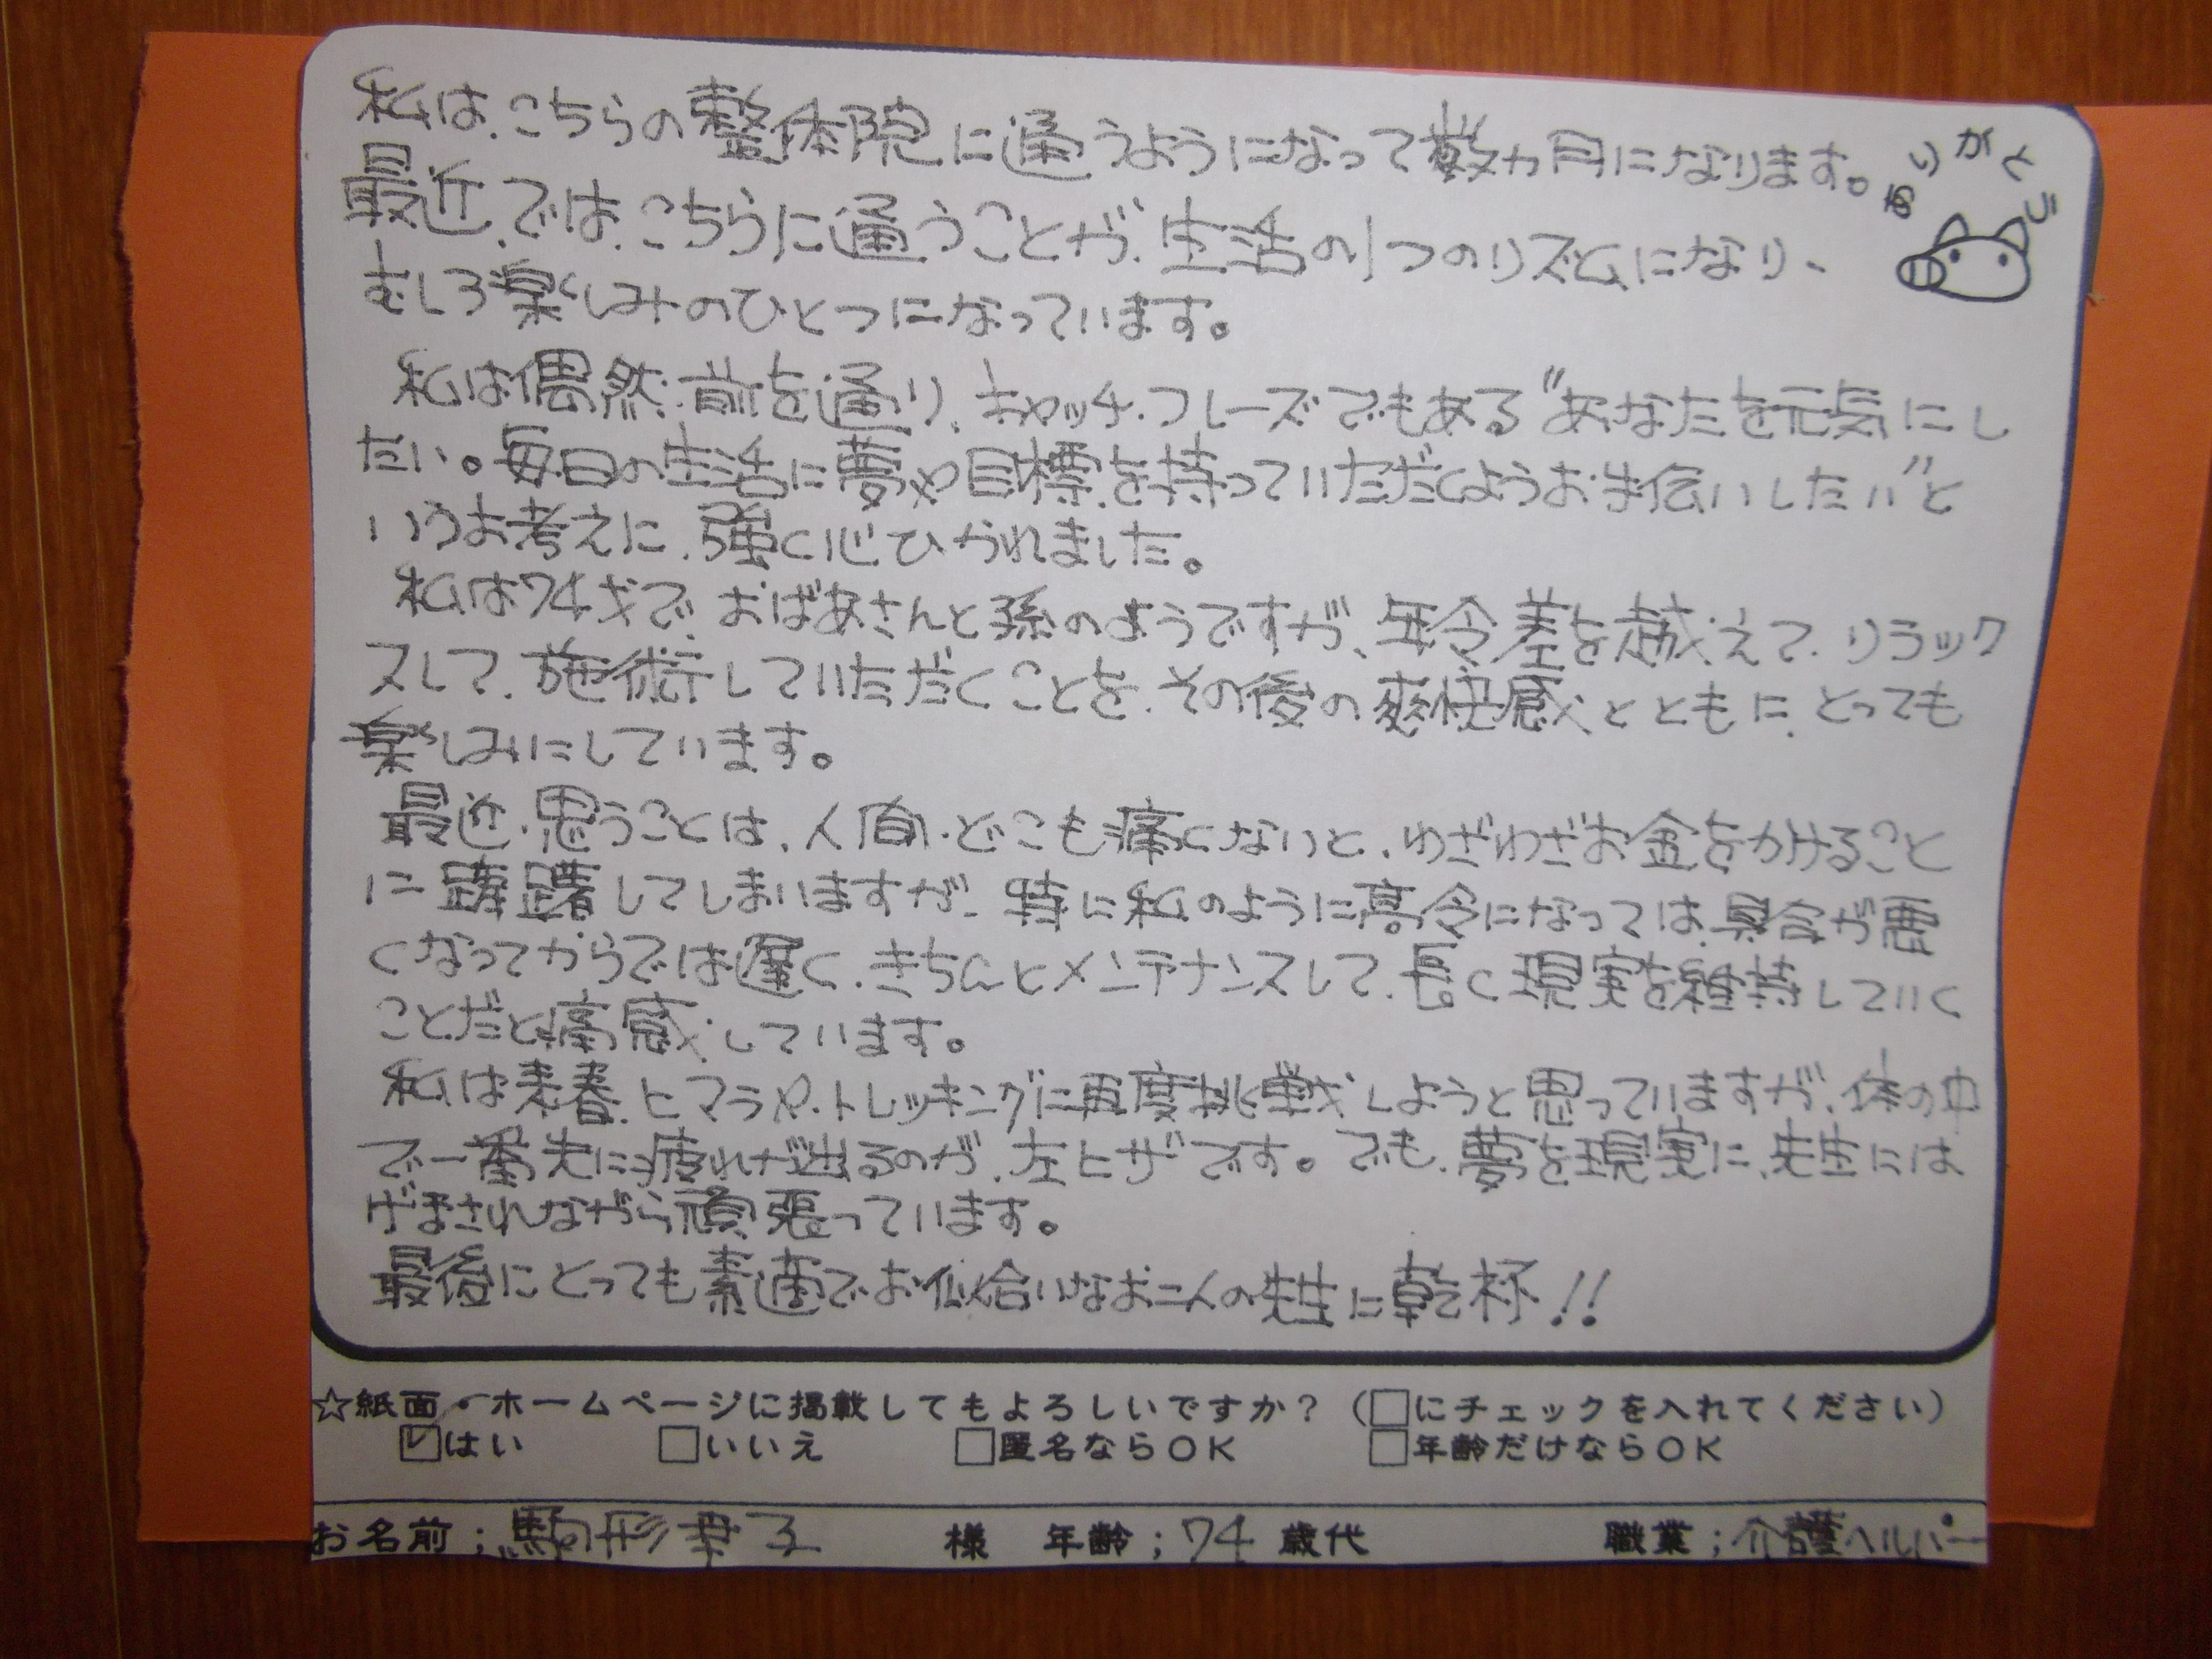 私は、こちらの整体院に通うようになって数ヵ月になります。
ありがとう
最近では、こちらに通うことが、生活の1つのリズムになり、
むしろ楽しみのひとつになっています。
私は偶然、前を通り、キャッチ・フレーズでもある"あなたを元気にし
たい。毎日の生活に夢や目標を持っていただくようお手伝いしたい"と
いうお考えに、強く心ひかれました。
私は74才で、おばあさんと孫のようですが、年令差を越えて、リラック
スして、施術していただくことを、その後の爽快感とともに、とっても
楽しみにしています。
最近、思うことは、人間、どこも痛くないと、わざわざお金をかけること
に躊躇してしまいますが、特に私のように高令になっては、具合が悪
くなってからでは遅く、きちんとメンテナンスして、長く現実を維持していく
ことだと痛感しています。
私は来春、ヒマラヤ・トレッキングに再度挑戦しようと思っていますが、体の中
で一番先に疲れが出るのが、左ヒザです。でも、夢を現実に、先生には
げまされながら頑張っています。
最後にとっても素適でお似合いなお二人の先生に乾杯!!
☆紙面・ホームページに掲載してもよろしいですか？（□にチェックを入れてください）
☑はい □いいえ □匿名ならOK □年齢だけならOK
お名前；駒形幸子 様 年齢；74歳代 職業；介護ヘルパー